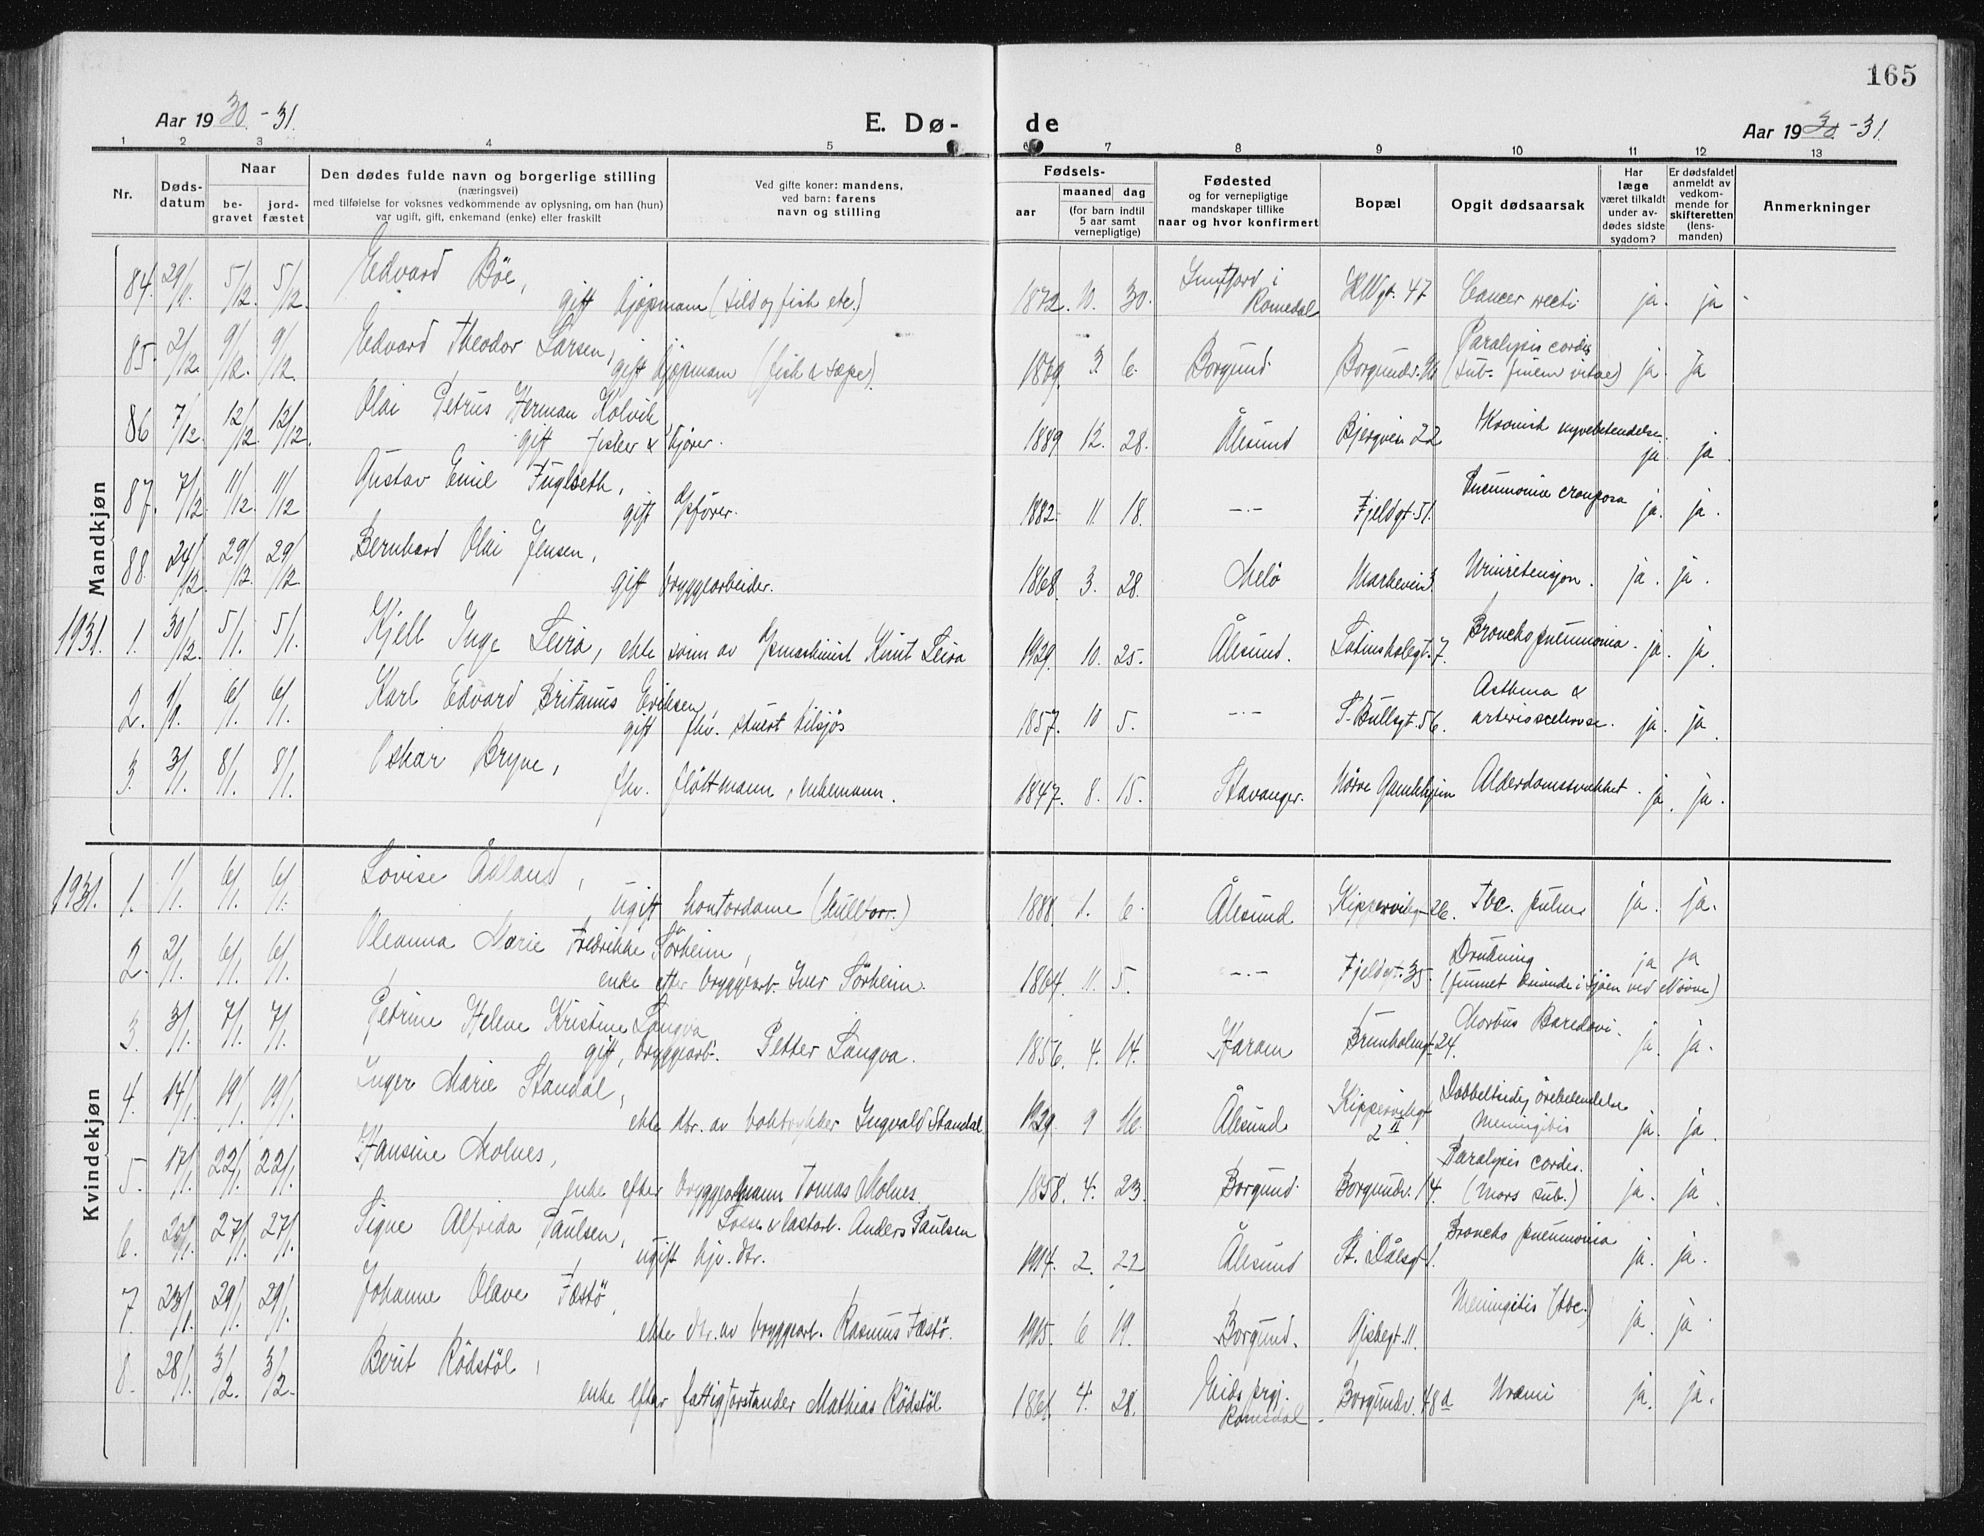 165
Aar 1930-31.
E. Dø-
de
Aar 1930-31.
1 2 3 4 5 6 7 8 9 10 11 12 13
Nr.
Døds-
datum
Naar
be-
gravet
jord-
fæstet
Den dødes fulde navn og borgerlige stilling
(næringsvei)
med tilføielse for voksnes vedkommende av oplysning, om han (hun)
var ugift, gift, enkemand (enke) eller fraskilt
Ved gifte koner: mandens,
ved barn: farens
navn og stilling
Fødsels-
aar
maaned dag
(for barn indtil
5 aar samt
vernepligtige)
Fødested
og for vernepligtige
mandskaper tillike
naar og hvor konfirmert
Bopæl
Opgit dødsaarsak
Har
læge
været tilkaldt
under av-
dødes sidste
sygdom?
Er dødsfaldet
anmeldt av
vedkom-
mende for
skifteretten
(lens-
manden)
Anmerkninger
Mandkjøn
84. 29/11. 5/12. 5/12. Edvard Böe,
gift kjøpmann (sild og fisk etc.) 1872. 10. 30. i Romsdal 47 Cancer recti ja. ja.
85. 2/12. 9/12. 9/12. Edvard Theodor Larsen,
gift kjøpmann 1869. 3. 6. Borgund. Paralysis cordis
(sub. finem vitae) ja. ja
86 7/12. 12/12. 12/12. Olai Petrus Herman Kolvik
gift fisker & kjører. 1889 12. 28. Ålesund 22 Kronisk nyrebetendelse. ja. ja.
87. 7/12 11/12. 11/12 Gustav Emil Fuglseth,
gift 1882. 11. 18. -"- Fjeldgt. 51. Pneumonia crouposa ja. ja.
88. 24/12. 29/12. 29/12. Bernhard Olai Jensen,
gift bryggearbeider. 1868. 3. 28. Melö Urinretensjon. ja. ja.
1931. 1. 30/12. 5/1. 5/1. Kjell Inge Leira, ekte sönn av Knut Leira 1929. 10. 25. Ålesund. Latinskolegt. 7. Bronchopneumonia. ja. ja.
2. 6/1. 6/1. Karl Edvard Britanus Eriksen,
gift fhv. stuert tilsjøs 1857. 10 5. -"- 56. Asthma &
arteriosclerose. ja. ja.
3. 3/1. 8/1. 8/1. Oskar Bryne,
fhv. fløttmann, enkemann. 1847. 8. 15. Stavanger. Nörve Gamlehjem Alderdomssvakhet. ja. ja.
Kvindekjøn
1931. 1. 1/1. 6/1. 6/1. Lovise Ådland,
ugift kontordame 1888. 1. 6. Ålesund 26. Tbc. pulm. ja. ja.
2. 2/1. 6/1. 6/1. Oleanna Marie Fredrikke Sörheim,
enke efter bryggearb. Iver Sörheim. 1864. 11. 5. -"- Fjeldgt. 35. Drukning
(funnet i sjöen ved Nörve) ja ja
3. 3/1. 7/1. 7/1. Petrine Helene Kristine Langva
gift, bryggearb. Petter Langva. 1856. 4. 14. Haram Brunholmgt. 24. Morbus Basedovi. ja. ja.
4. 14/1. 19/1. 19/1. Inger Marie Standal,
ekte dtr. av boktrykker Ingvald Standal. 1929. 9 16. Ålesund Kippervikgt.
2 II. Dobbeltsidig örebetendelse
Meningitis ja. ja.
5. 17/1. 22/1. 22/1. Hansine Molnes,
enke efter Tomas Molnes. 1858. 4. 23. Borgund. Borgundv. 14. Paralysis cordis.
(Mors sub.) ja. ja.
6. 27/1. 27/1. Signe Alfrida Paulsen,
ugift hjv. dtr. Losse & lastarb. Anders Paulsen 1914. 2. 22 Ålesund Broncho pneumonia ja. ja.
7. 23/1. 29/1. 29/1. Johanne Olave Fæstö,
ekte dtr. av bryggearb. Rasmus Fæstö. 1915. 6 19. Borgund. 11. Meningitis (tbc.) ja. ja.
8. 28/1. 3/2. 3/2. Berit Rödstöl,
enke efter fattigforstander Mathias Rödstöl 1861. 4. 28. Eids prgj.
Romsdal. Borgundv. 48a Uræmi ja. ja.